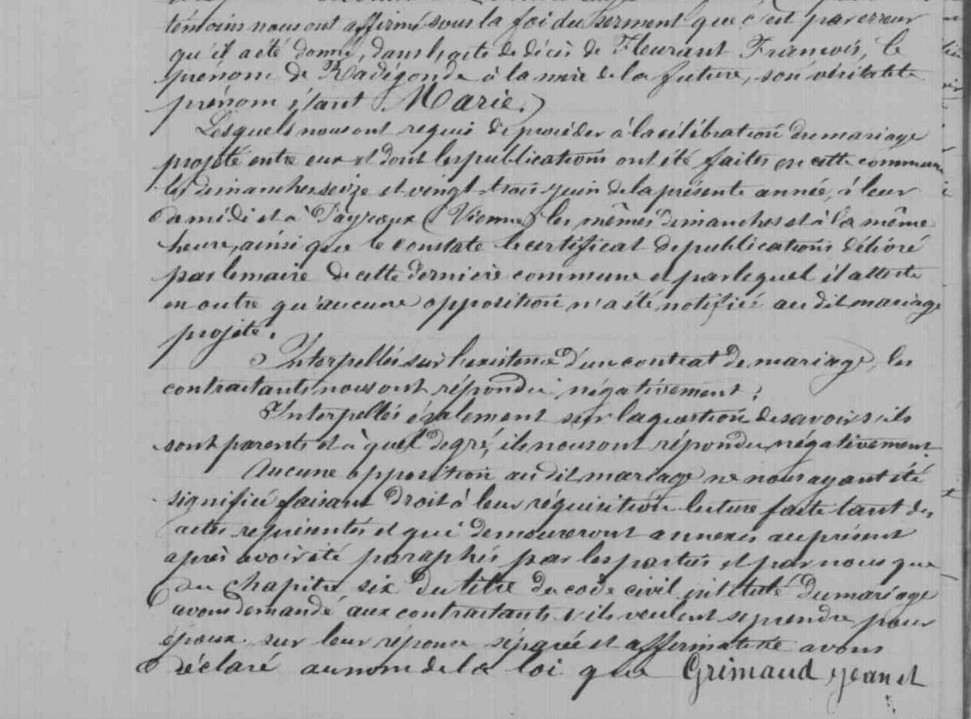 témoins nous ont affirmé sous la foi du serment que c'est par erreur
qu'il a été donné, dans l'acte de décès de Fleurant François, le
prénom de Radégonde à la mère de la future, son véritable
prénom étant Marie.)
Lesquels nous ont requis de procéder à la célébration du mariage
projeté entre eux et dont les publications ont été faites en cette commune
les dimanches seize et vingt trois juin de la présente année, à l'heure
de midi et à Payroux (Vienne) les mêmes dimanches et à la même
heure, ainsi que le constate le certificat de publications délivré
par le maire de cette dernière commune et par lequel il atteste
en outre qu'aucune opposition n'a été notifiée au dit mariage
projeté.
Interpellés sur l'existence d'un contrat de mariage, les
contractants nous ont répondu négativement ;
Interpellés également sur la question de savoir s'ils
sont parents et à quel degré, ils nous ont répondu négativement.
Aucune opposition au dit mariage ne nous ayant été
signifiée faisant droit à leur réquisition lecture faite tant des
actes représentés et qui demeureront annexés au présent
après avoir été paraphés par les parties et par nous que
du chapitre six du titre du code civil intitulé du mariage
avons demandé aux contractants s'ils veulent se prendre pour
époux sur leur réponse séparée et affirmative avons
déclaré au nom de la loi que Grimaud Jean et